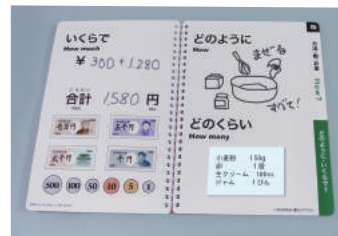 いくらで
How much
¥ 300 + 1,280
合計 1,580 円
壱万円
五千円
弐千円
千円
500 100 50 10 5 1
どのように
How
まぜる
すべて!
どのくらい
How many
小麦粉 150g
卵 1個
生クリーム 100cc
ジャム 1びん
How?